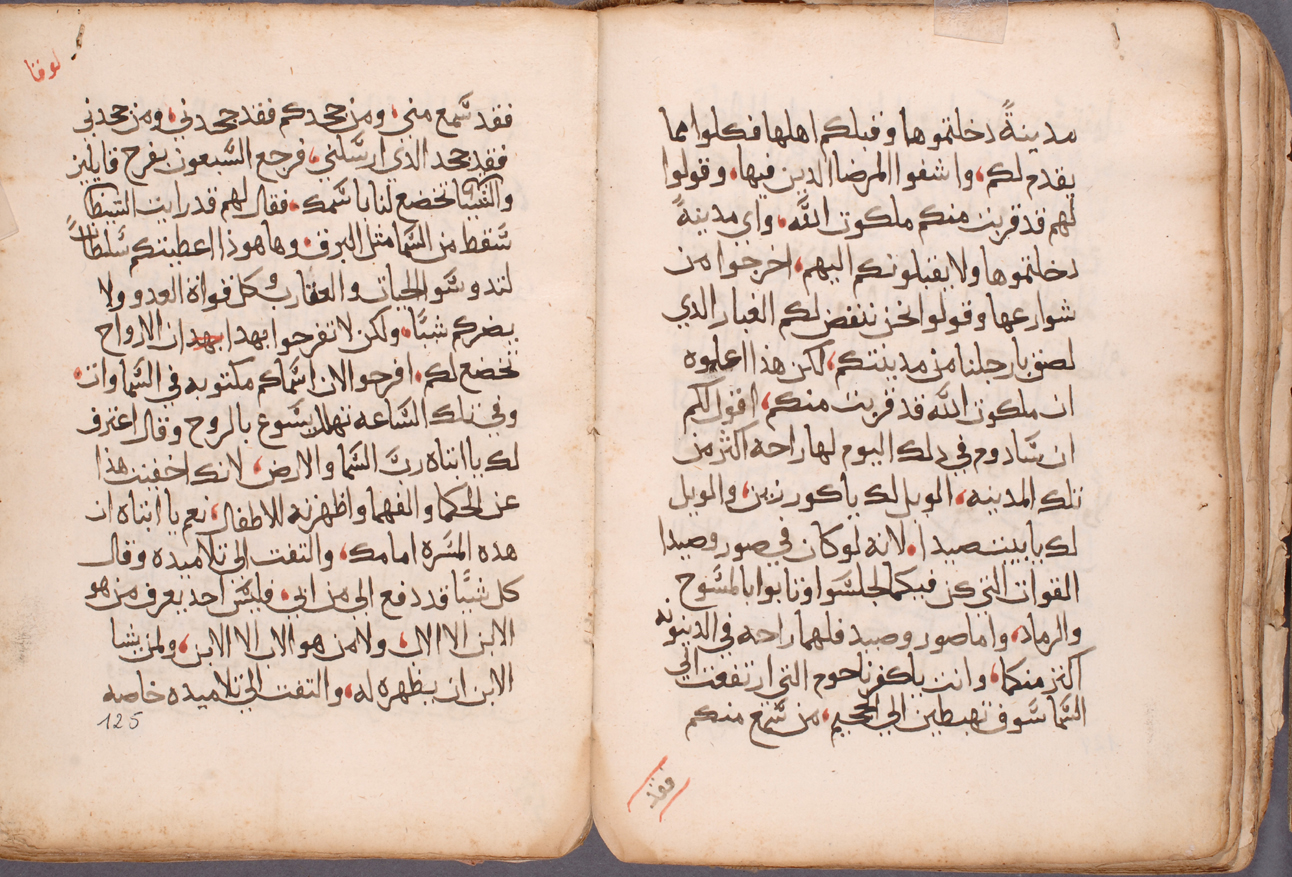 مدينةً دخلتموها وقبلكم اهلها فكلوا مما
يقدم لكم، واشفوا المرضا الدين فيها، وقولوا
لهم قد قربت منكم ملكوت الله، واي مدينةً
دخلتموها ولا يقبلونكم اليهم، اخرجوا من
شوارعها وقولوا نحن ننفض لكم الغبار الدي
لصق بارجلنا من مدينتكم، لكن هذا اعلموه
ان ملكوت الله قد قربت منكم، اقول لكم
ان سادوم في دلك اليوم لها راحه اكتر من
تلك المدينه، الويل لك يا كورزين، والويل
لك يا بيت صيدا، لانه لو كان في صور وصيدا
القوات التي كن فيكما لجلسوا وتابوا بالمسوح
والرماد، واما صور وصيدا فلهما راحه في الدينونه
اكتر منكما، وانت يا كفرناحوم التي ارتفعت الي
السما سوف تهبطين الي الجحيم، من سمع منكم
فقد
لوقا
فقد سمع مني، ومن جحدكم فقد جحدني، ومن جحدني
فقد جحد الدي ارسلني، فرجع السبعون بفرح قايلين
تخضع لنا باسمك، فقال لهم قد رايت الشيطان
سقط من السما متل البرق، وها هوذا اعطيتكم سلطاناً
لتدوسوا الحيات والعقارب وكل قواة العدو ولا
يضركم شيا، ولكن لا تفرحوا بهدا ان الارواح
تخضع لكم، افرحو الان اسماكم مكتوبه في السماوات،
وفي تلك الساعه تهلل يسوع بالروح وقال اعترف
لك يا ابتاه ربّ السما والارض، لانك اخفيت هذا
عن الحكما والفهما واظهرته للاطفال، نعم يا ابتاه ان
هده المسره امامك، والتفت الي تلاميده وقال
كل شيا قد دفع الي من ابي، فليس احد يعرف من هو
الابن الا الاب، ولا من هو الاب الا الابن، ولمن يشا
الابن ان يظهره له، والتفت الي تلاميده خاصه
125